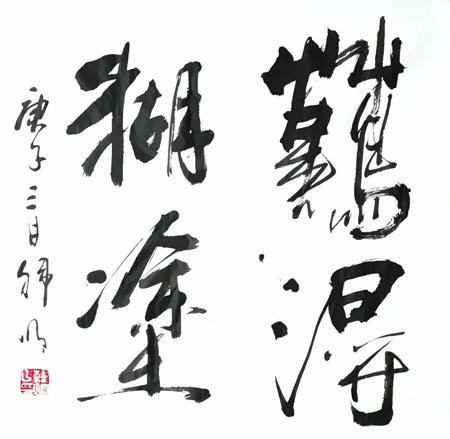 難得
糊塗
庚子三月